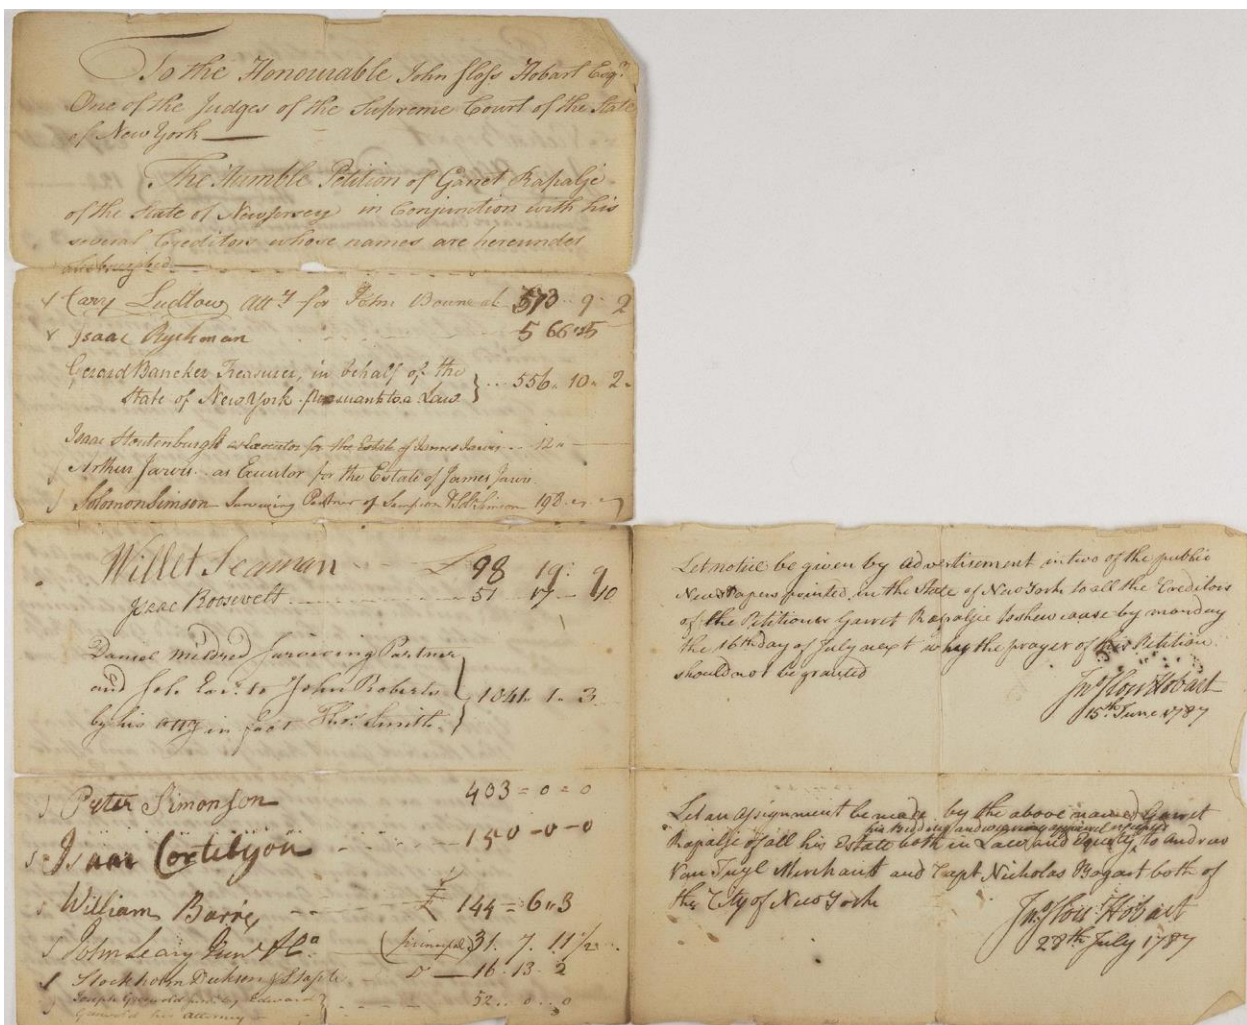 To the Honourable John Sloss Hobart Esqr.
One of the Judges of the Supreme Court of the State
of New York
The Humble Petition of Garret Rapalje
of the State of New Jersey in Conjunction with his
several Creditors whose names are hereunder
subscribed
Cary Ludlow Atty for John Bowne 573 " 9 " 2
Isaac Ryckman
Gerard Bancker Treasurer, in behalf of the
State of New York pursuant to a Law 556 " 10 " 2
Isaac Stoutenburgh as Executor for the Estate of James Jarvis 12 "
Arthur Jarvis as Executor for the Estate of James Jarvis
Solomon Simson Surviving Partner of 198
Willet Seaman £ 98 19 9
Isaac Roosevelt 51 17 10
Daniel Mildred Surviving Partner
and Sole Exr. to John Roberts
by his atty in fact Thos. Smith 1041 " 1 " 3
Peter Simonson 403 = 0 = 0
Isaac Cortelyou 150 - 0 - 0
William Barre £ 144 = 6 " 3
John Leary Junr & Co (principal) 31. 7. 11 1/2
Stockholm Dickson 16. 13. 2
Joseph Griswold by Edward 52 .. 0 .. 0
Griswold his attorney
Let notice be given by advertisement in two of the public
News Papers printed in the State of New York to all the Creditors
of the Petitioner Garret Rapalje to shew cause by monday
the 16th day of July next why the prayer of the Petition
should not be granted
Jno Sloss Hobart
15th June 1787
Let an assignment be made by the above named Garret
his Bedding and wearing apparel excepted
Rapalje of all his Estate both in Law and Equity to Andrew
Van Tuyl Merchant and Capt Nicholas Bogart both of
the City of New York
Jno Sloss Hobart
28th July 1787